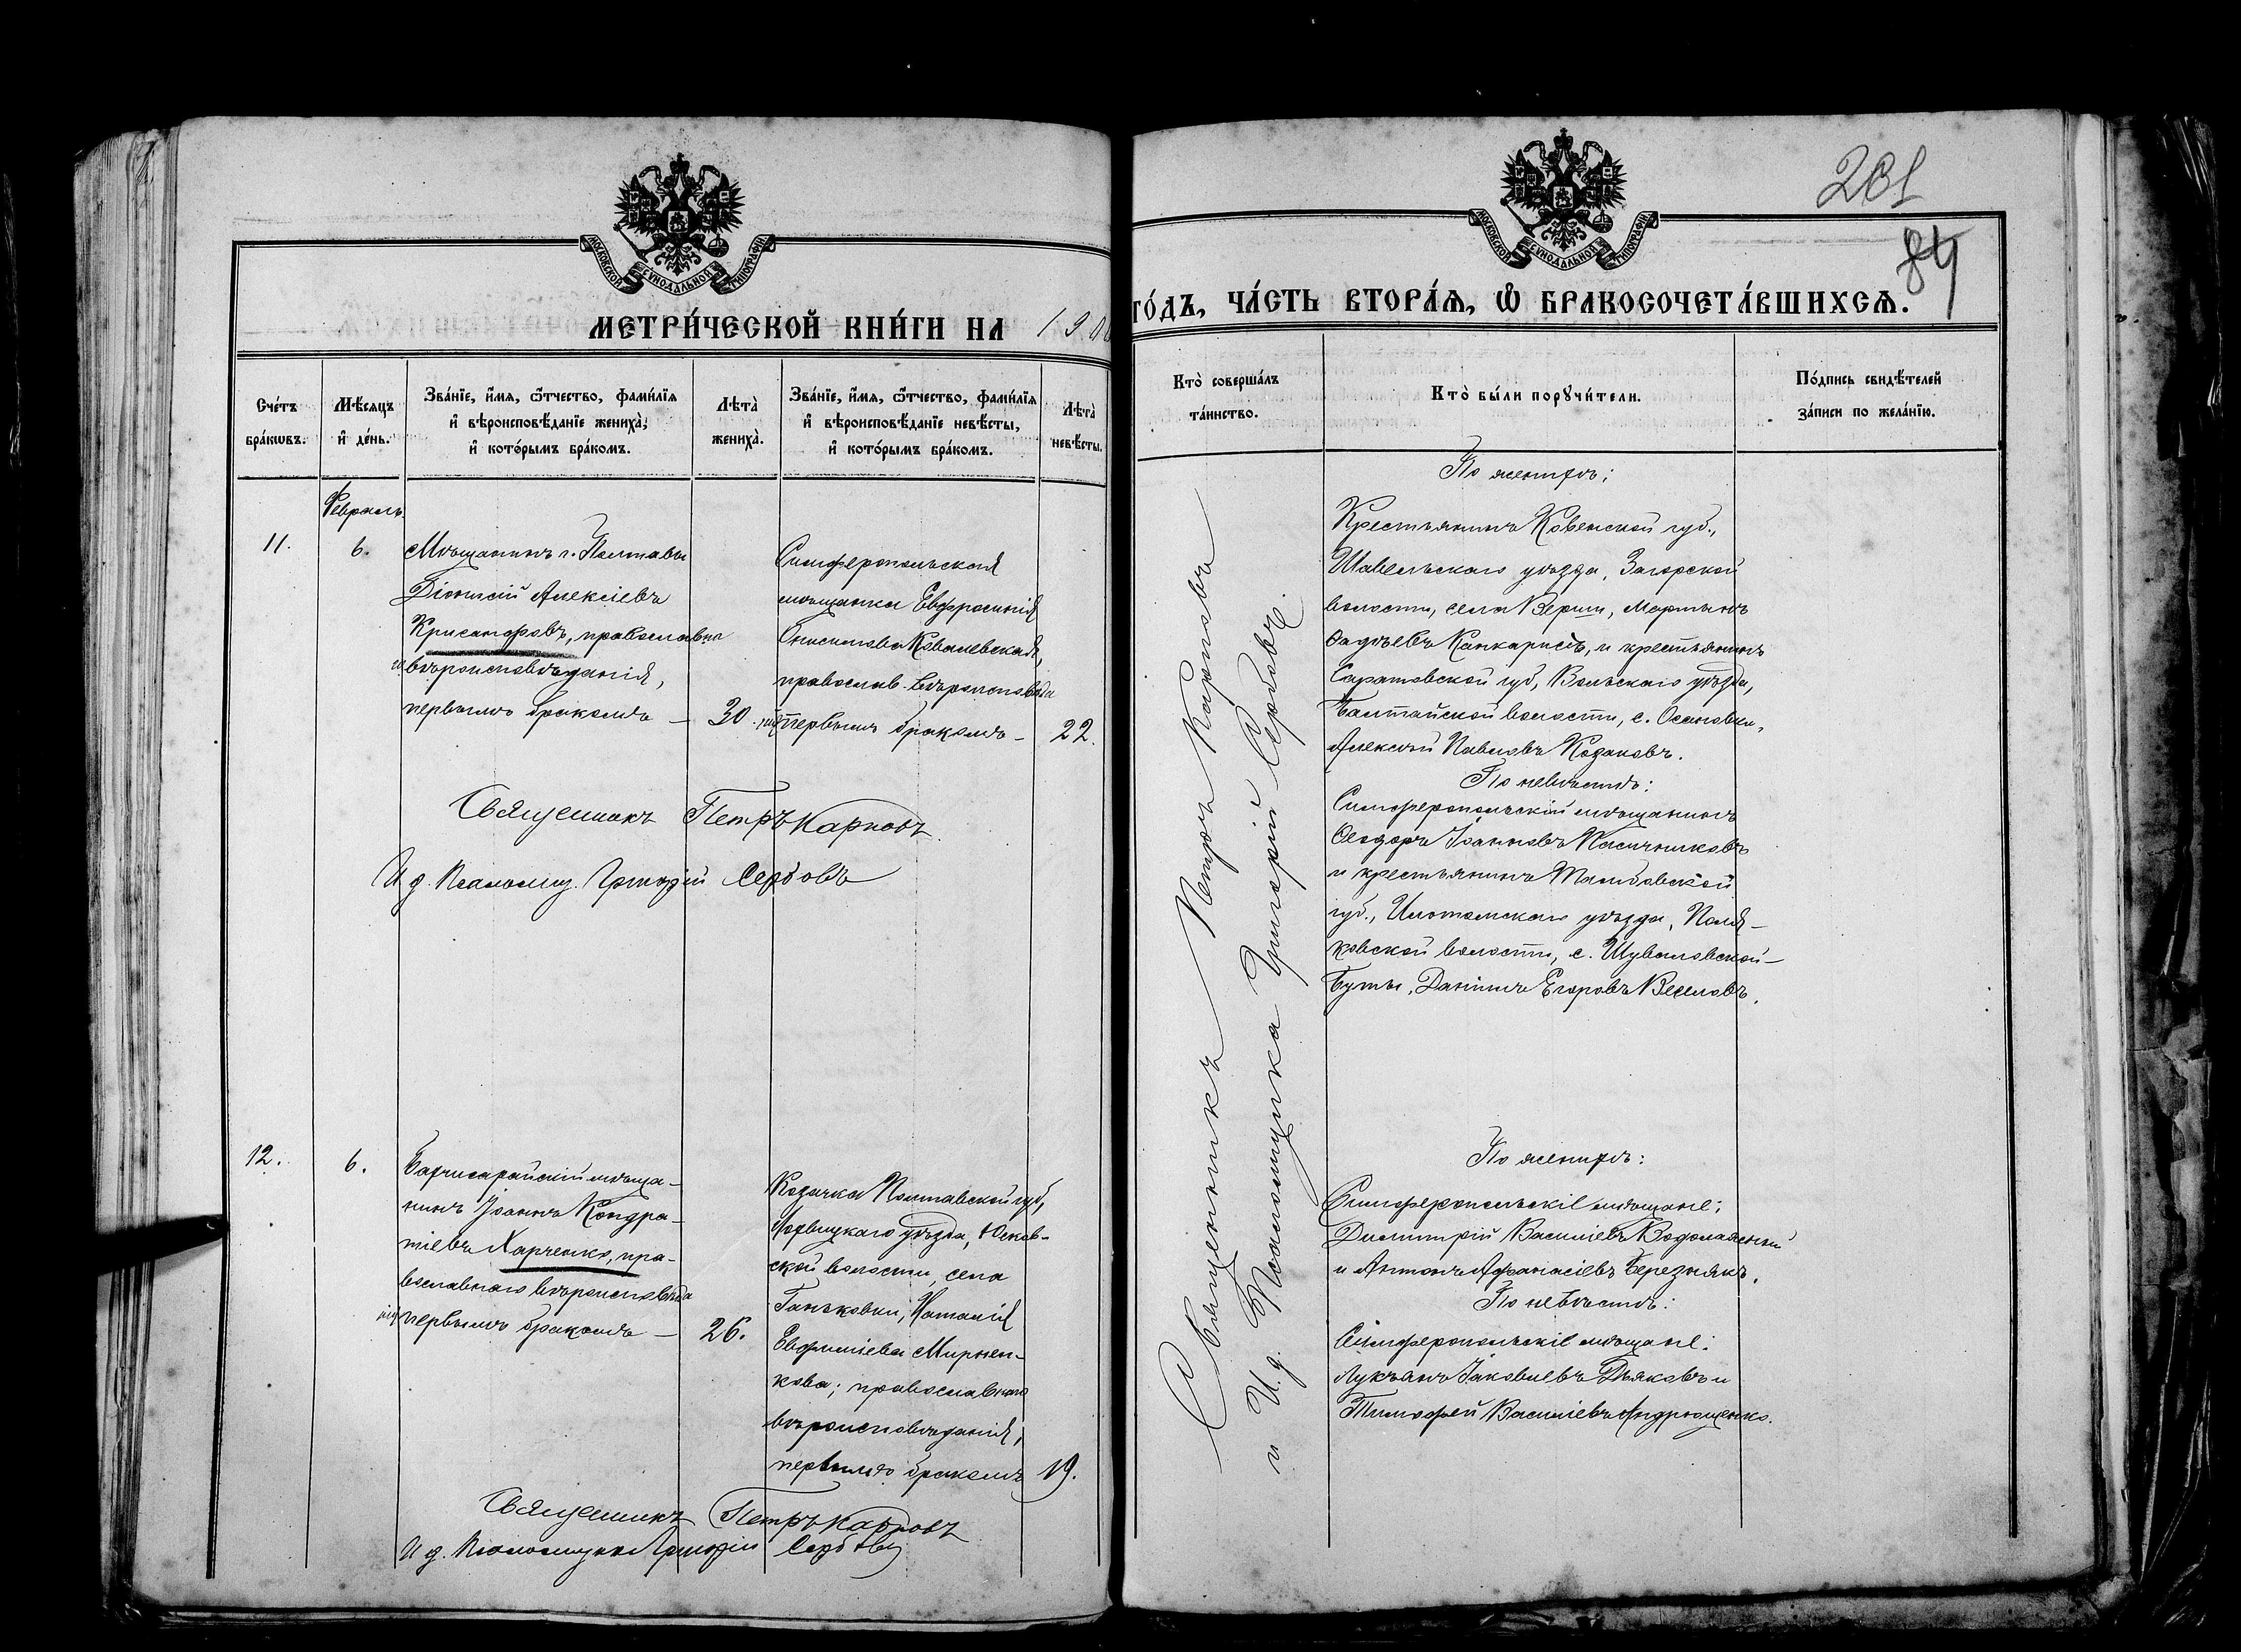 МОСКОВСКОЙ СѴНОДАЛЬНОЙ ТИПОГРАФІИ
МЕТРИ́ЧЕСКОЙ КНИ́ГИ НА 190
Сче́тъ бра́кѡвъ.
Мѣ́сяцъ и҆ де́нь.
Зва́нїе, и҆́мя, ѻ҆́тчество, фами́лїя
и҆ вѣроисповѣ́данїе жениха̀,
и҆ кото́рымъ бра́комъ.
Лѣта̀ жениха̀.
Зва́нїе, и҆́мя, ѻ҆́тчество, фами́лїя
и҆ вѣроисповѣ́данїе невѣ́сты,
и҆ кото́рымъ бра́комъ.
Лѣта̀ невѣ́сты.
Февраль.
11.
6.
Мѣщанинъ г. Полтавы
Діонисій Алексіевъ
Крисанфовъ, православна
го вѣроисповѣданія,
первымъ бракомъ —
30.
Симферопольская
мѣщанка Евфросинія
Онисимова Ковалевская,
православ. вѣроисповѣда
нія, первымъ бракомъ —
22.
Священникъ Петръ Карповъ.
И д. Псаломщ. Григорій Сербовъ
12.
6.
Бахчисарайскій мѣща-
нинъ Іоаннъ Кондра-
тіевъ Харченко, пра-
вославнаго вѣроисповѣда
нія первымъ бракомъ —
26.
Козачка Полтавской губ,
Лохвицкаго уѣзда, Юсков-
ской волости, села
Ганьковки, Наталія
Евфиміева Мирнен-
кова; православнаго
вѣроисповѣданія,
первымъ бракомъ
19.
Священникъ Петръ Карповъ
И д. Псаломщика Григорій Сербовъ
201
84
МОСКОВСКОЙ СѴНОДАЛЬНОЙ ТИПОГРАФІИ
ГО́ДЪ, ЧА́СТЬ ВТОРА́Я, Ѡ҆ БРАКОСОЧЕТА́ВШИХСЯ.
Кто̀ соверша́лъ
та́инство.
Кто̀ бы́ли порꙋчи́тели.
По́дпись свидѣ́телей
за́писи по жела́нїю.
Священникъ Петръ Карповъ
и И. д. Псаломщика Григорій Сербовъ.
По женихѣ:
Крестьянинъ Ковенской губ.,
Шавельскаго уѣзда, Загорской
волости, села Верши, Мартынъ
Фадѣевъ Канкарисъ, и крестьянинъ
Саратовской губ, Вольскаго уѣзда,
Балтайской волости, с. Осиновки,
Алексѣй Павловъ Козаковъ.
По невѣстѣ:
Симферопольскій мѣщанинъ
Ѳеодоръ Іоанновъ Пасичниковъ
и крестьянинъ Тамбовской
губ., уѣзда, Поля-
ковской волости, с. Шуваловской-
Буты, Даніилъ Егоровъ Веселовъ.
По женихѣ:
Симферопольскіе мѣщане:
Димитрій Василіевъ Водолаженко
и Антонъ Афанасіевъ Березнякъ.
По невѣстѣ:
Симферопольскіе мѣщане:
Лукьянъ Іаковлевъ Дьяковъ и
Тимофей Василіевъ Андрющенко.